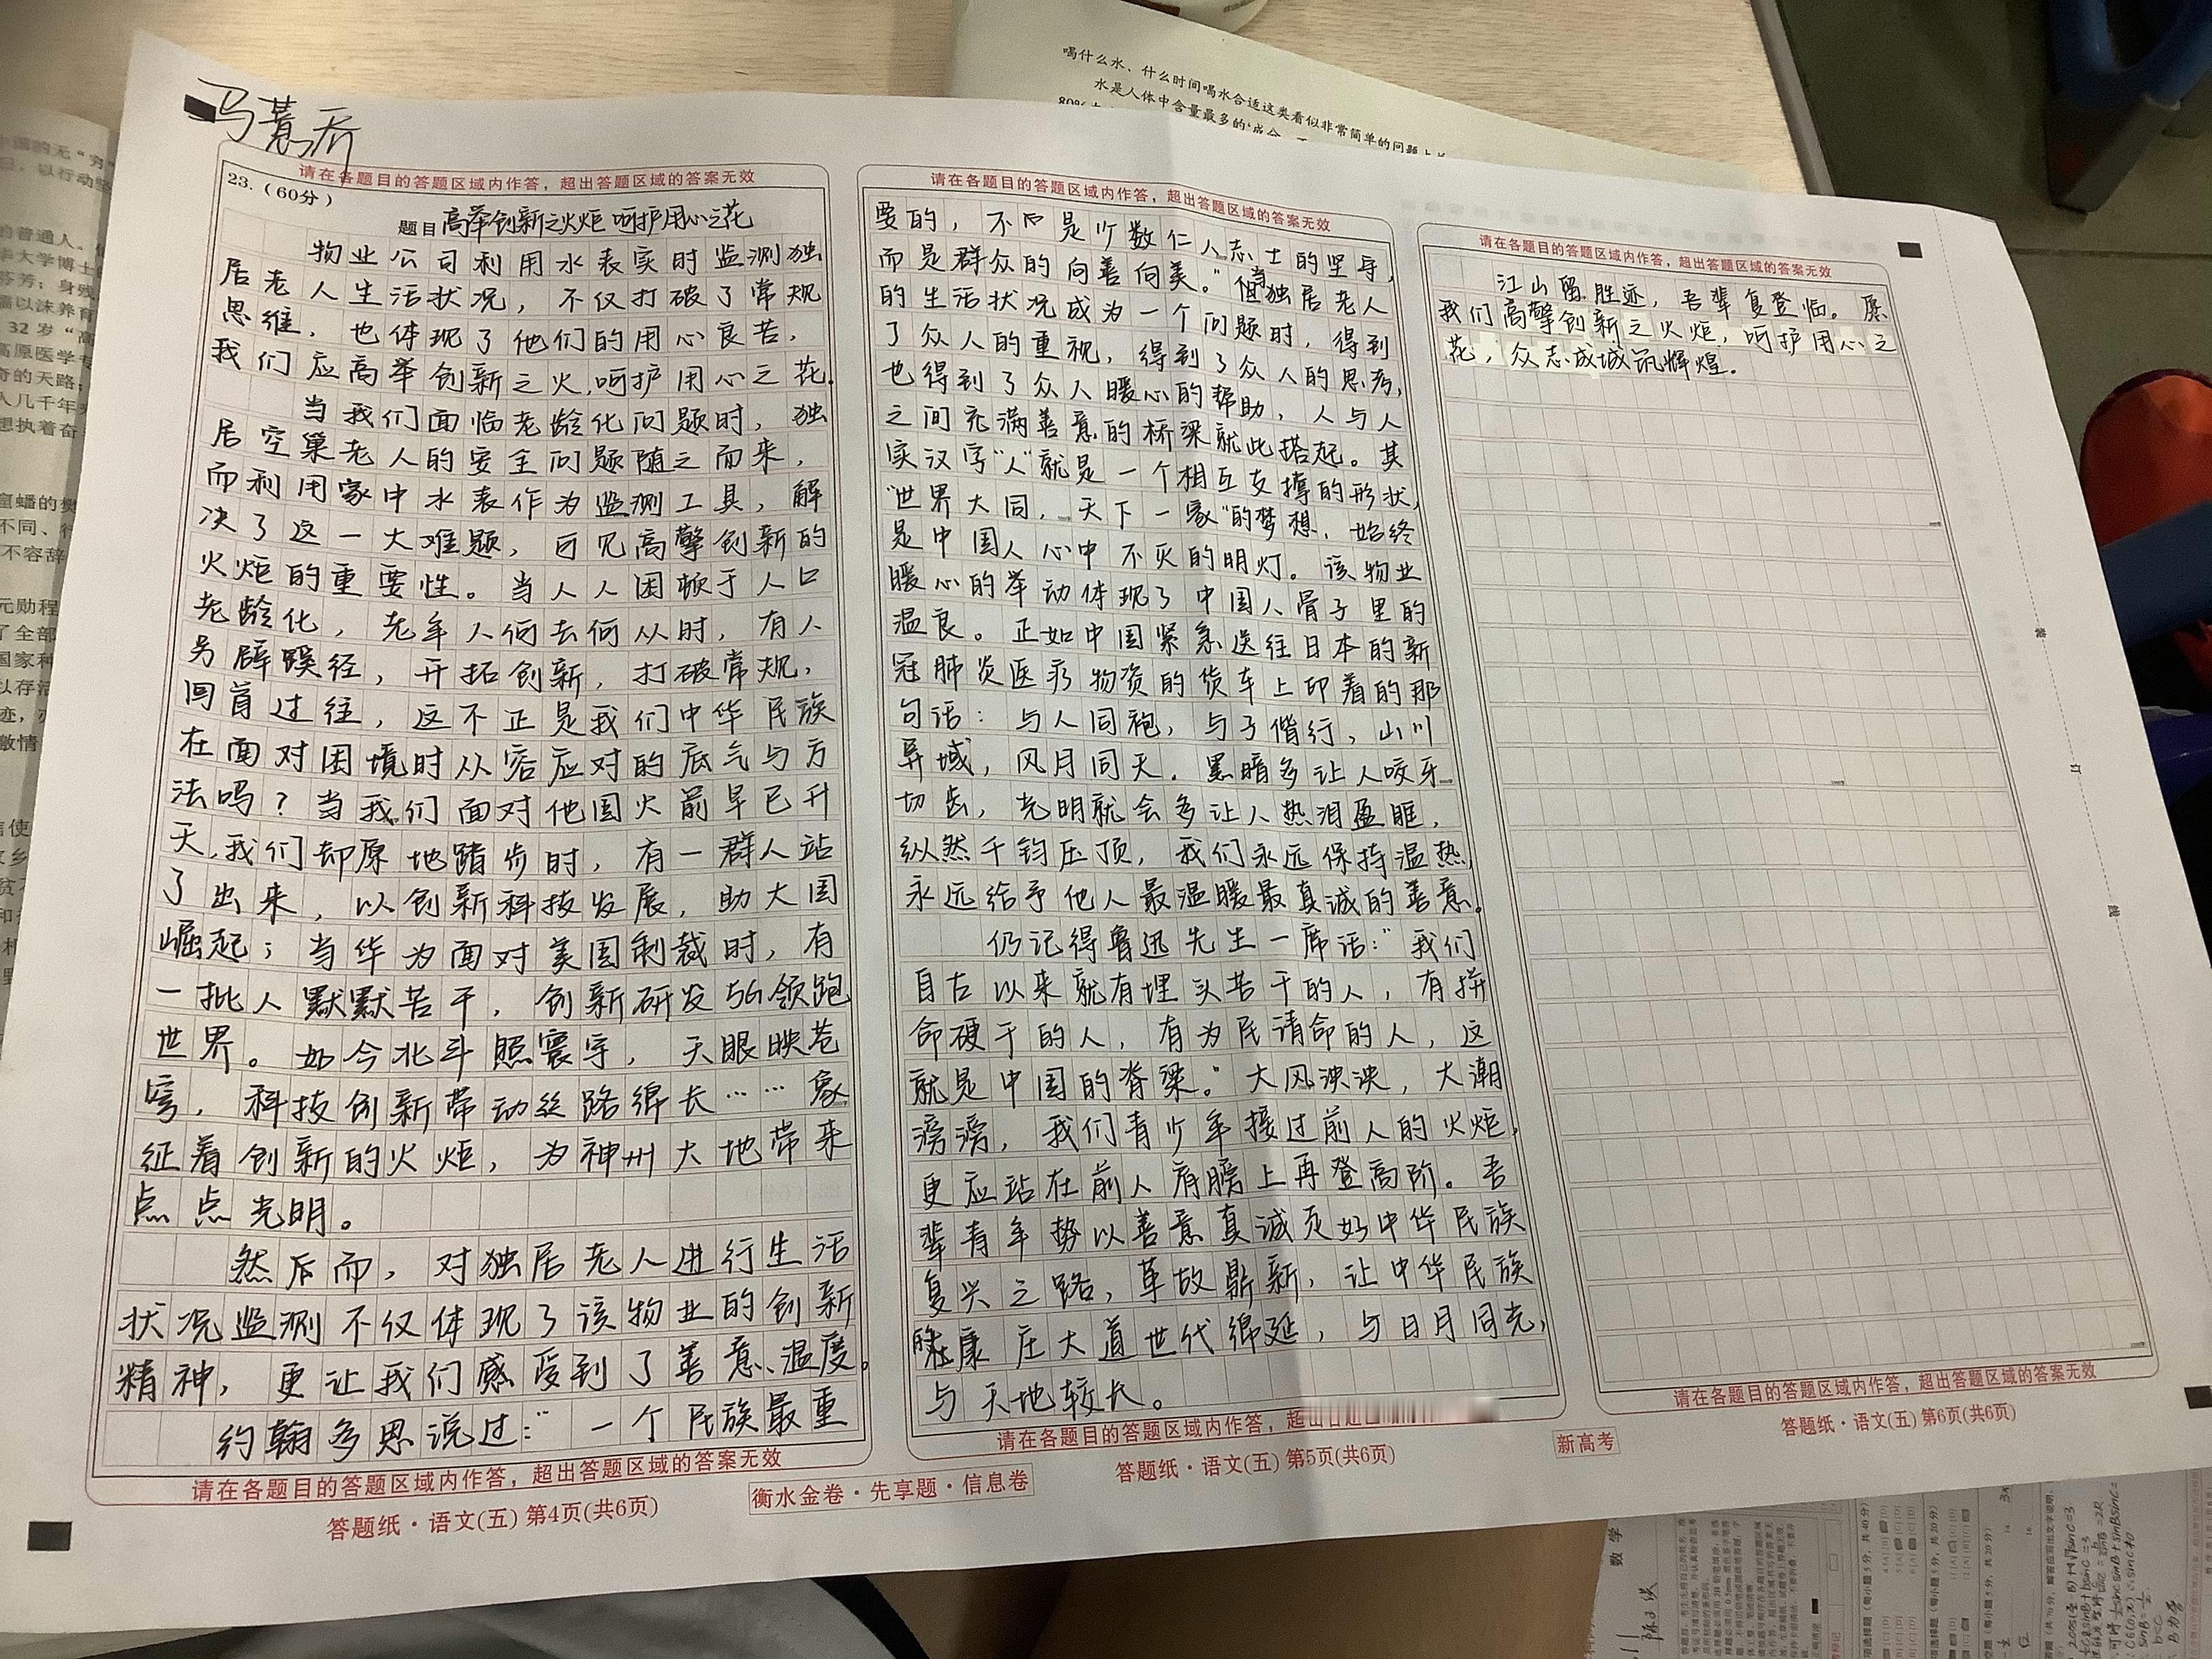 马薏乔
请在各题目的答题区域内作答，超出答题区域的答案无效
23.（60分）
题目 高举创新之火炬 呵护用心之花
物业公司利用水表实时监测独
居老人生活状况，不仅打破了常规
思维，也体现了他们的用心良苦，
我们应高举创新之火,呵护用心之花.
当我们面临老龄化问题时，独
居空巢老人的安全问题随之而来，
而利用家中水表作为监测工具，解
决了这一大难题，可见高擎创新的
火炬的重要性。当人人困顿于人口
老龄化，老年人何去何从时，有人
另辟蹊径，开拓创新，打破常规，
回首过往，这不正是我们中华民族
在面对困境时从容应对的底气与方
法吗？当我们面对他国火箭早已升
天,我们却原地踏步时，有一群人站
了出来，以创新科技发展，助大国
崛起；当华为面对美国制裁时，有
一批人默默苦干，创新研发5G领跑
世界。如今北斗照寰宇，天眼映苍
穹，科技创新带动丝路绵长……象
征着创新的火炬，为神州大地带来
点点光明。
然后而，对独居老人进行生活
状况监测不仅体现了该物业的创新
精神，更让我们感受到了善意、温度。
约翰多恩说过：“一个民族最重
请在各题目的答题区域内作答，超出答题区域的答案无效
答题纸·语文(五) 第4页(共6页)
衡水金卷·先享题·信息卷
请在各题目的答题区域内作答，超出答题区域的答案无效
要的，不是少数仁人志士的坚守，
而是群众的向善向美。”当独居老人
的生活状况成为一个问题时，得到
了众人的重视，得到了众人的思考，
也得到了众人暖心的帮助，人与人
之间充满善意的桥梁就此搭起。其
实汉字“人”就是一个相互支撑的形状，
“世界大同，天下一家”的梦想，始终
是中国人心中不灭的明灯。该物业
暖心的举动体现了中国人骨子里的
温良。正如中国紧急送往日本的新
冠肺炎医疗物资的货车上印着的那
句话：与人同袍，与子偕行，山川
异域，风月同天．黑暗多让人咬牙
切齿，光明就会多让人热泪盈眶，
纵然千钧压顶，我们永远保持温热，
永远给予他人最温暖最真诚的善意。
仍记得鲁迅先生一席话：“我们
自古以来就有埋头苦干的人，有拼
命硬干的人，有为民请命的人，这
就是中国的脊梁。”大风泱泱，大潮
滂滂，我们青少年接过前人的火炬，
更应站在前人肩膀上再登高阶。吾
辈青年势以善意真诚走好中华民族
复兴之路，革故鼎新，让中华民族
康庄大道世代绵延，与日月同光，
与天地较长。
请在各题目的答题区域内作答，
答题纸·语文(五) 第5页(共6页)
新高考
请在各题目的答题区域内作答，超出答题区域的答案无效
江山留胜迹，吾辈复登临。愿
我们高擎创新之火炬，呵护用心之
花，众志成城筑辉煌.
装
订
线
请在各题目的答题区域内作答，超出答题区域的答案无效
答题纸·语文(五) 第6页(共6页)
喝什么水、什么时间喝水合适这类看似非常简单的问题上
水是人体中含量最多的
数学